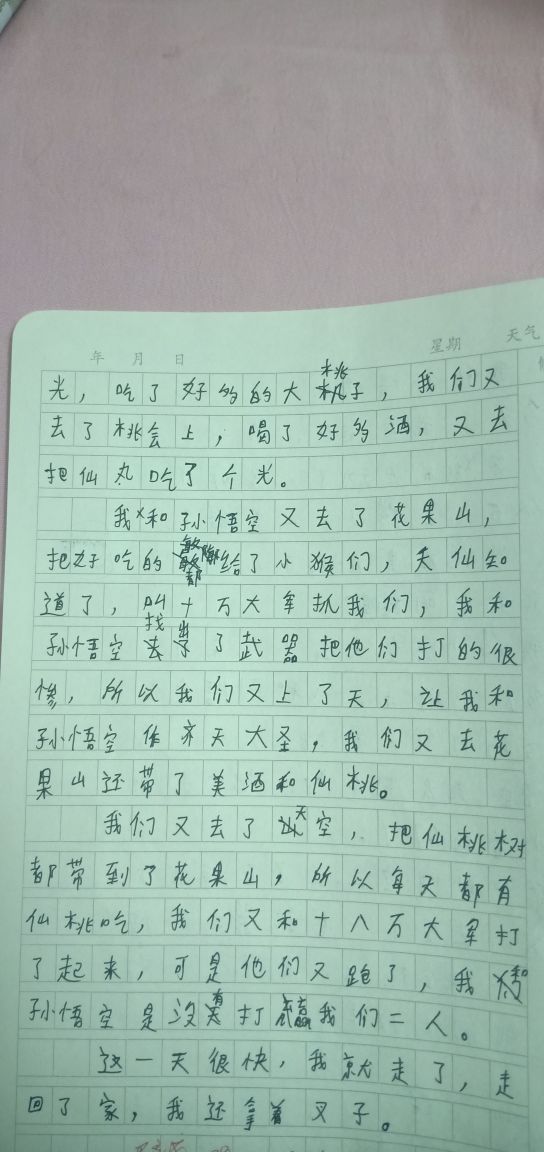 年 月 日 星期 天气
光，吃了好多的大桃子，我们又
去了桃会上，喝了好多酒，又去
把仙丸吃了个光。
我和孙悟空又去了花果山，
把好吃的都给了小猴们，天仙知
道了，叫十万大军抓我们，我和
孙悟空去找了武器把他们打的很
惨，所以我们又上了天，让我和
孙悟空作齐天大圣，我们又去花
果山还带了美酒和仙桃。
我们又去了天空，把仙桃树
都带到了花果山，所以每天都有
仙桃吃，我们又和十八万大军打
了起来，可是他们又跑了，我和
孙悟空是没有打赢我们二人。
这一天很快，我就走了，走
回了家，我还拿着叉子。